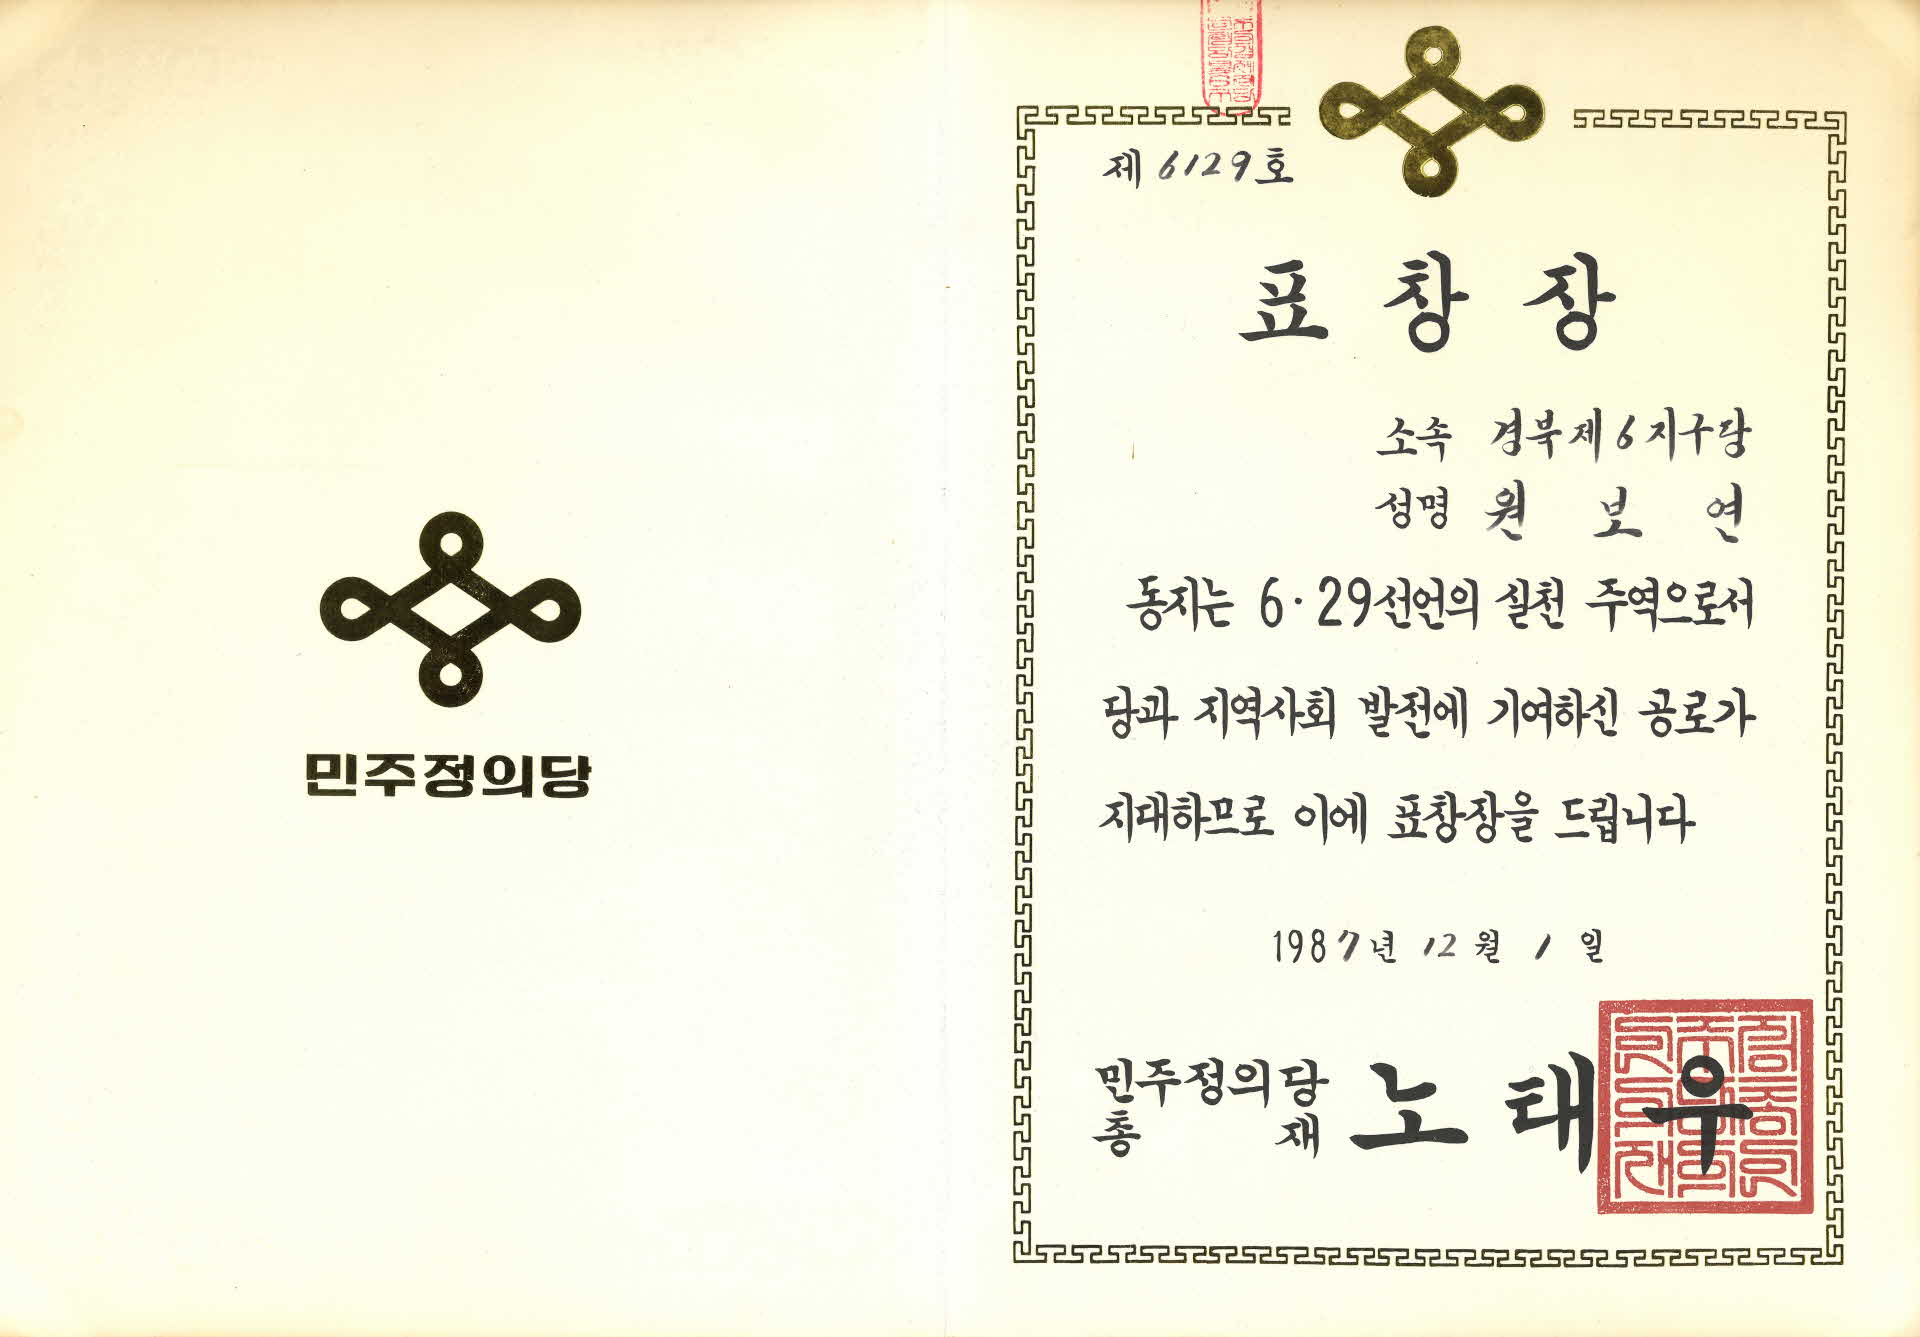 민주정의당
제 6129 호
표 창 장
소속 경북 제 6 지구당
성명 원 보 연
동지는 6·29선언의 실천 주역으로서
당과 지역사회 발전에 기여하신 공로가
지대하므로 이에 표창장을 드립니다
1987년 12월 1일
민주정의당
총 재 노 태 우